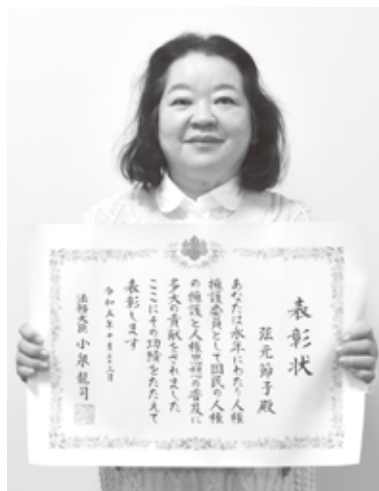 表彰状
弦元節子殿
あなたは永年にわたり人権
擁護委員として国民の人権
の擁護と人権思想の普及に
多大の貢献をされました
ここにその功績をたたえて
表彰します
令和五年十月二十三日
法務大臣 小泉龍司